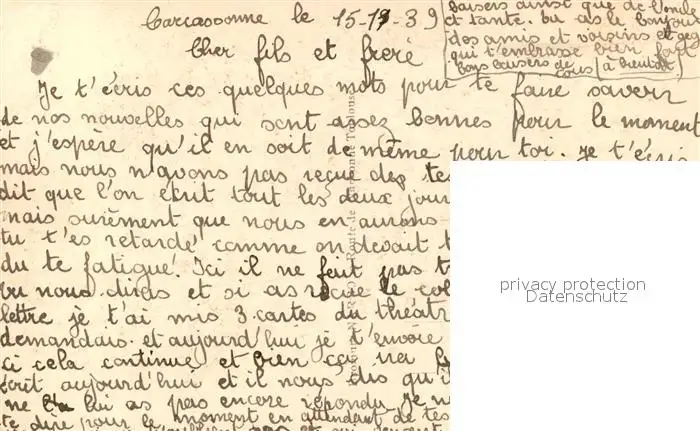 Carcassonne le 15-11-39
Cher fils et frère
Je t'écris ces quelques mots pour te faire savoir
de nos nouvelles qui sont assez bonnes pour le moment
et j'espère qu'il en soit de même pour toi. je t'écris
mais nous n'avons pas reçue des te
dit que l'on écrit tout les deux jour
mais surêment que nous en aurons
tu t'es retardé comme on devait t
du te fatigué. Ici il ne fait pas t
tu nous diras et si as reçue le col
lettre je t'ai mis 3 cartes du théatr
demandais. et aujourd'hui je t'envoie
ci cela continue et bien ça ira
écrit aujourd'hui et il nous dis qu'il
ne lui as pas encore répondu Je n
te dire pour le moment en attendant de tes
baisers ainsi que de l'oncle
et tante. tu as le bonjour
des amis et voisins et
qui t'embrasse bien fort
bons baisers de tous (à bientôt)
privacy protection
Datenschutz